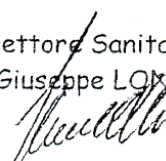 ettore Sanito
Giuseppe LOM